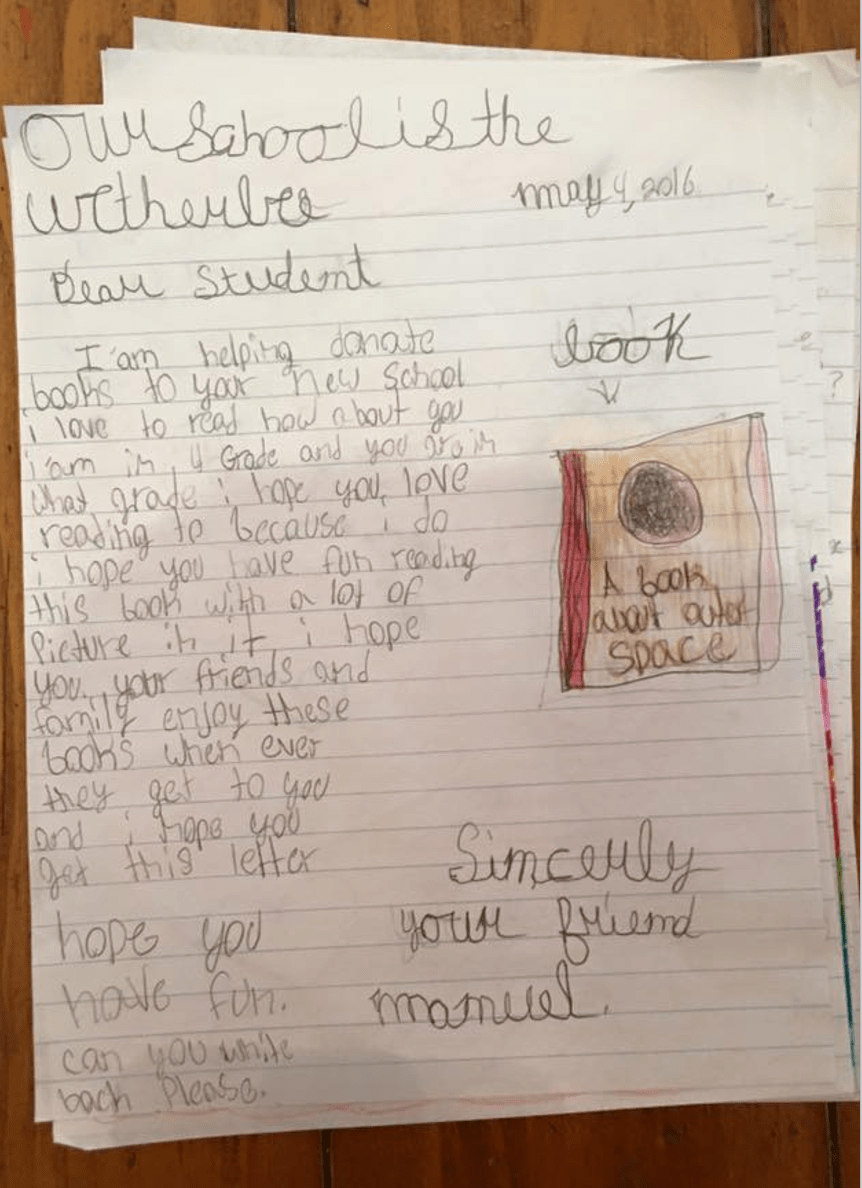 Our School is the
Wetherbee
may 4, 2016
Dear Student
I am helping donate
books to your new School
i love to read how about you
i am in 4 Grade and you are in
what grade i hope you love
reading to because i do
i hope you have fun reading
this book with a lot of
Picture in it i hope
you, your friends and
family enjoy these
books when ever
they get to you
and i hope you
get this letter
hope you
have fun.
can you write
back Please.
book
A book
about outer
space
Sincerly
your friend
manuel.